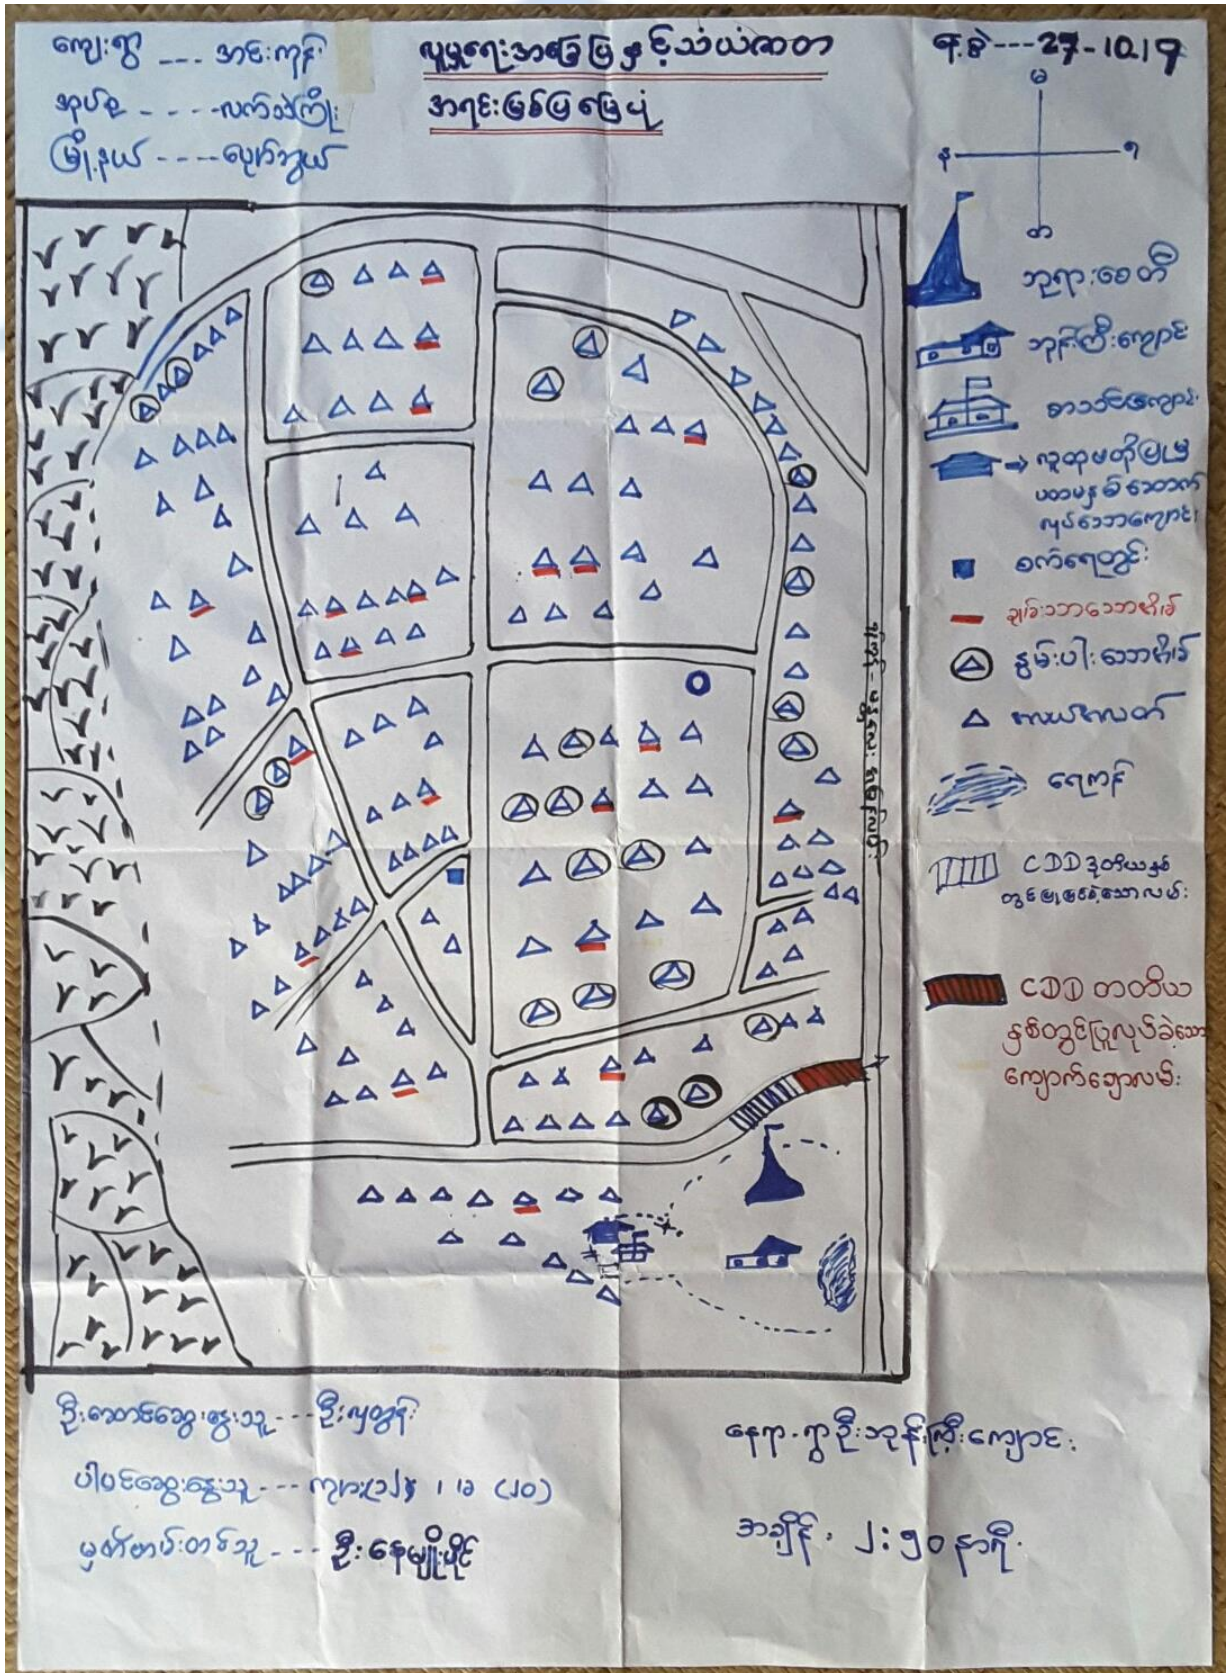 ကျေးရွာ --- အင်းကုန်း
အုပ်စု ---- လက်သဲကြီး
မြို့နယ် ---- လှိုင်းဘွဲ့
လူမှုရေးအခြေပြနှင့်သယံဇာတ
အရင်းမြစ်ပြမြေပုံ
ရ.စွဲ---27-10.19
မ
န
တ
ဘုရားစေတီ
ဘုန်းကြီးကျောင်း
စာသင်ကျောင်း
ပထမနှစ်ဆောက်
လုပ်သောကျောင်း
စက်ရေတွင်း
ချမ်းသာသောအိမ်
နွမ်းပါးသောအိမ်
လယ်လတ်
ရေကန်
CDD ဒုတိယနှစ်
တွင်ပြုပြင်ခဲ့သောလမ်း
CDD တတိယ
နှစ်တွင်ပြုလုပ်ခဲ့သော
ကျောက်ချောလမ်း
ဦးဆောင်ဆွေးနွေးသူ --- ဦးလှထွန်း
ပါဝင်ဆွေးနွေးသူ ---
မှတ်တမ်းတင်သူ --- ဦးနေမျိုးပိုင်
နေရာ-ရွာဦးဘုန်းကြီးကျောင်း
အချိန် ၂:၅၀ နာရီ